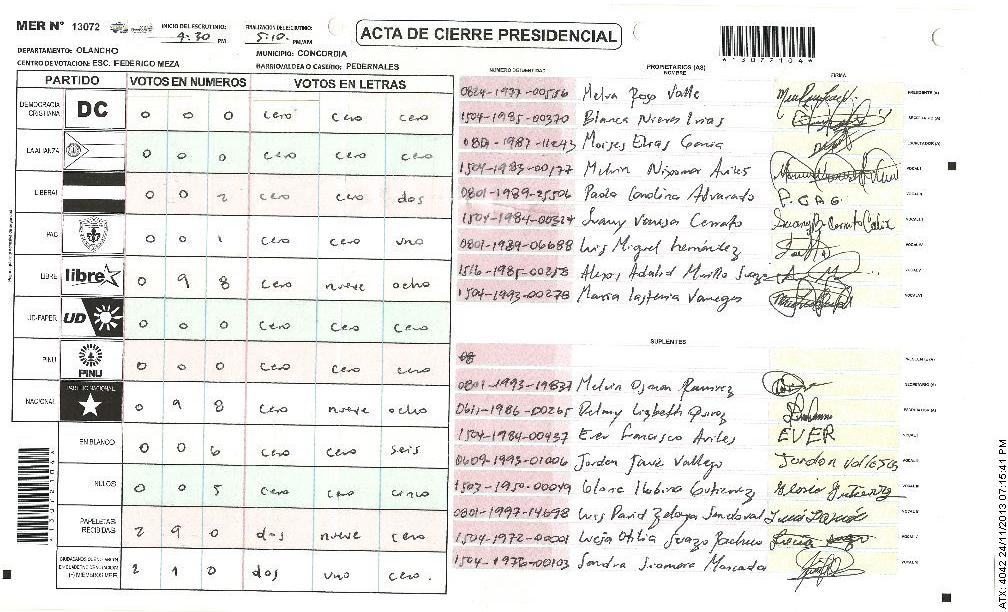 MER Nº 13072
INICIO DE ESCRUTINIO: 4:30 PM
FINALIZACION DEL ESCRUTINIO: 5:10 PM/AM
ACTA DE CIERRE PRESIDENCIAL
*13077104*
DEPARTAMENTO: OLANCHO
MUNICIPIO: CONCORDIA
CENTRO DE VOTACION: ESC. FEDERICO MEZA
BARRIO/ALDEA O CASERIO: PEDERNALES
PARTIDO VOTOS EN NUMEROS VOTOS EN LETRAS
DEMOCRACIA CRISTIANA DC 0 0 0 cero cero cero
LA ALIANZA 0 0 0 cero cero cero
LIBERAL 0 0 2 cero cero dos
PAC 0 0 1 cero cero uno
LIBRE libre 0 9 8 cero nueve ocho
UD-FAPER UD 0 0 0 cero cero cero
PINU PINU 0 0 0 cero cero cero
NACIONAL PARTIDO NACIONAL 0 9 8 cero nueve ocho
EN BLANCO 0 0 6 cero cero seis
NULOS 0 0 5 cero cero cinco
PAPELETAS RECIBIDAS 2 9 0 dos nueve cero
2 1 0 dos uno cero.
NUMERO DE IDENTIDAD PROPIETARIOS (AS) NOMBRE FIRMA
0824-1977-00556 Melva Valle PRESIDENTE (A)
1504-1985-00370 Blanca Nieves SECRETARIO (A)
Moises Elias ESCRUTADOR (A)
1504-1983-00177 Melvin Nixomar Aviles VOCAL I
0801-1989-25506 Paola Carolina Alvarado P.C.A.G. VOCAL II
1504-1984-00324 Suany Vanesa Cerrato VOCAL III
0801-1989-06688 Luis Miguel Hernández VOCAL IV
1516-1985-00258 Alexis Adalid Murillo VOCAL V
1504-1993-00278 Maria Lastenia Vanegas VOCAL VI
SUPLENTES
PRESIDENTE (A)
0801-1993-19837 Melvin Osman Ramirez SECRETARIO (A)
0611-1986-00265 Delmy Lizbeth ESCRUTADOR (A)
1504-1984-00437 Ever Francisco Aviles EVER VOCAL I
0609-1993-01006 Jordon Vallejo Jordon VOCAL II
1503-1950-00049 Gutierrez Gloria Gutierrez VOCAL III
0801-1997-14698 Luis David Zelaya Sandoval VOCAL IV
1504-1972-00001 Lucia Otilia Suazo Pacheco VOCAL V
1504-1976-00103 Sandra Siomara Moncada VOCAL VI
ATX: 4042 24/11/2013 07:15:41 PM